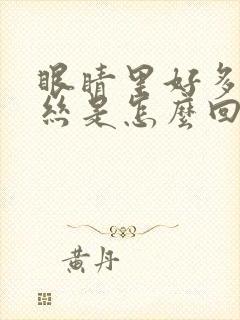 眼睛里好多
絲是怎麼回
黄丹